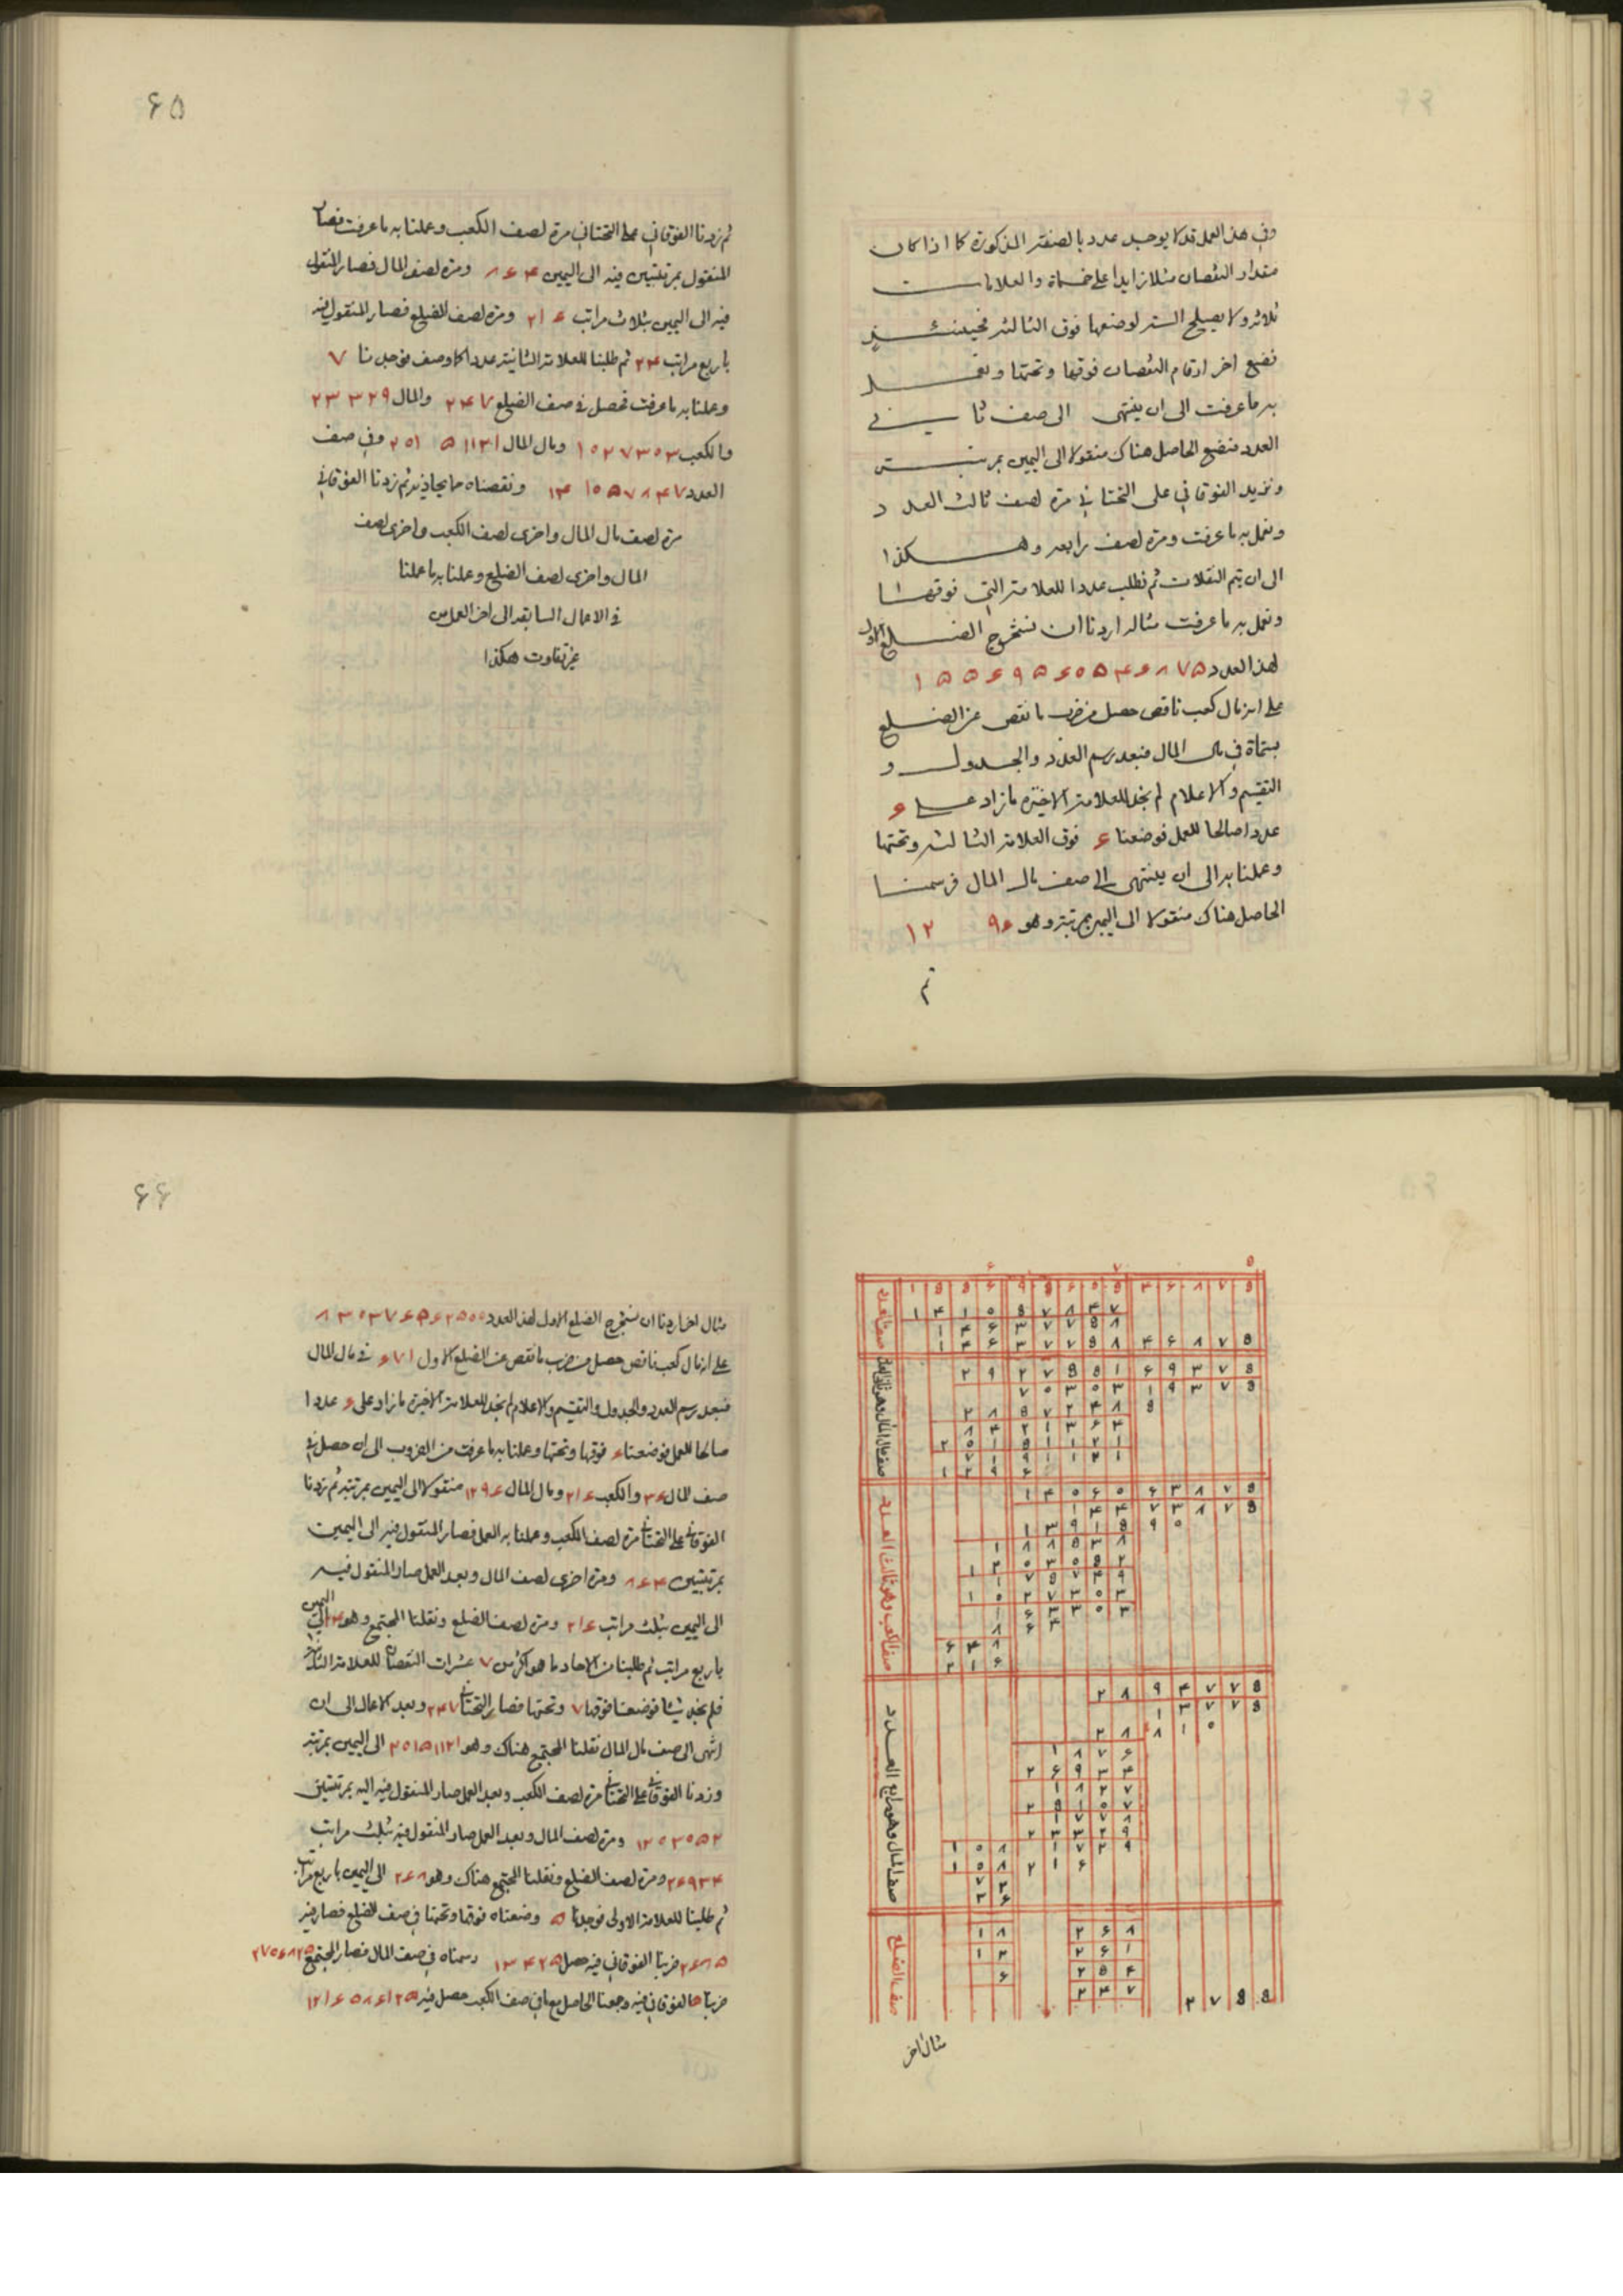 وفي هذا العمل قد لا يوجد عدد بالصفة المذكورة كما اذا كان
مقدار النقصان مثلا زايدا على خمسماة والعلامات
ثلاثة ولا يصلح الستة لوضعها فوق الثالثة فحينئذ
نضع اخر ارقام النقصان فوقها وتحتها ونعمل
به ما عرفت الى ان ينتهى الى صف ثاني
العدد فنضع الحاصل هناك منقولا الى اليمين بمرتبة
ونزيد الفوقاني على التحتاني مرة لصف ثالث العدد
ونعمل به ما عرفت ومرة لصف رابعه وهكذا
الى ان يتم النقلات ثم نطلب عددا للعلامة التي فوقها
ونعمل به ما عرفت مثاله اردنا ان نستخرج الضلع الاول
لهذا العدد ۱۵۵۶۹۵۶۰۵۴۶۸۷۵
على انه مال كعب ناقص حصل من ضرب ما نقص عن الضلع
بستماة في مال المال فبعد رسم العدد والجدول و
التقسيم والاعلام لم نجد للعلامة الاخيرة ما زاد على ۶
عددا صالحا للعمل فوضعنا ۶ فوق العلامة الثالثة وتحتها
وعملنا به الى ان ينتهى الى صف مال المال فرسمنا
الحاصل هناك منقولا الى اليمين بمرتبة وهو ۱۲۹۶
ثم
۶۵
ثم زدنا الفوقاني على التحتاني مرة لصف الكعب وعملنا به ما عرفت فصار
المنقول بمرتبتين فيه الى اليمين ۸۶۴ ومرة لصف المال فصار المنقول
فيه الى اليمين بثلاث مراتب ۲۱۶ ومرة لصف الضلع فصار المنقول فيه
باربع مراتب ۲۴ ثم طلبنا للعلامة الثانية عددا كما وصف فوجدنا ۷
وعملنا به ما عرفت فحصل في صف الضلع ۲۴۷ والمال ۲۳۳۲۹
والكعب ۱۰۲۷۳۰۳ ومال المال ۲۰۱۵۱۱۲۱ وفي صف
العدد ۱۴۱۰۵۷۸۴۷ ونقصناه مما يحاذيه ثم زدنا الفوقاني
مرة لصف مال المال واخرى لصف الكعب واخرى لصف
المال واخرى لصف الضلع وعملنا به ما عملنا
في الاعمال السابقة الى اخر العمل من
غير تفاوت هكذا
۶ ۷ ۵
صف العدد
۱ ۵ ۵ ۶ ۹ ۵ ۶ ۰ ۵ ۴ ۶ ۸ ۷ ۵
۱ ۴ ۱ ۰ ۵ ۷ ۸ ۴ ۷
۱ ۴ ۶ ۳ ۷ ۷ ۵ ۸
۱ ۴ ۶ ۳ ۷ ۷ ۵ ۸ ۴ ۶ ۸ ۷ ۵
صف مال المال وهو ثاني العدد
۲ ۹ ۲ ۷ ۵ ۵ ۱ ۶ ۹ ۳ ۷ ۵
۷ ۰ ۳ ۰ ۳ ۱ ۹ ۳ ۷ ۵
۲ ۸ ۵ ۷ ۲ ۴ ۸ ۵
۸ ۴ ۲ ۱ ۳ ۶ ۴
۲ ۰ ۱ ۵ ۱ ۱ ۲ ۱
۷ ۱ ۹ ۱ ۱ ۲ ۱
۱ ۲ ۹ ۶
صف الكعب وهو ثالث العدد
۱ ۴ ۰ ۶ ۰ ۶ ۳ ۸ ۷ ۵
۱ ۴ ۴ ۷ ۳ ۸ ۷ ۵
۱ ۳ ۹ ۱ ۵ ۹ ۰
۱ ۸ ۸ ۵ ۳ ۸
۱ ۲ ۰ ۳ ۰ ۵ ۲
۱ ۷ ۵ ۷ ۴ ۹
۱ ۰ ۲ ۷ ۳ ۰ ۳
۱ ۶ ۳ ۳ ۰ ۳
۸ ۶ ۴
۶ ۴ ۸
۲ ۱ ۶
صف المال وهو رابع العدد
۲ ۸ ۹ ۴ ۷ ۷ ۵
۱ ۳ ۷ ۷ ۵
۲ ۸ ۸ ۱ ۰
۱ ۸ ۷ ۶
۲ ۶ ۹ ۳ ۴
۱ ۸ ۲ ۷
۲ ۵ ۱ ۰ ۷
۱ ۷ ۷ ۸
۲ ۳ ۳ ۲ ۹
۱ ۰ ۸ ۱ ۷ ۲ ۹
۱ ۵ ۸ ۲ ۱ ۶
۷ ۲
۳ ۶
صف الضلع
۱ ۸ ۲ ۶ ۸
۱ ۲ ۲ ۶ ۱
۶ ۲ ۵ ۴
۲ ۴ ۷ ۲ ۷ ۵ ۵
مثال اخر
۶۶
مثال اخر اردنا ان نستخرج الضلع الاول لهذا العدد
على انه مال كعب ناقص حصل من ضرب ما نقص عن الضلع الاول ۶۷۱ في مال المال
فبعد رسم العدد والجدول والتقسيم والاعلام لم نجد للعلامة الاخيرة ما زاد على ۶ عددا
صالحا للعمل فوضعنا ۶ فوقها وتحتها وعملنا به ما عرفت من الضروب الى ان حصل في
صف المال ۳۶ والكعب ۲۱۶ ومال المال ۱۲۹۶ منقولا الى اليمين بمرتبة ثم زدنا
الفوقاني على التحتاني مرة لصف الكعب وعملنا به العمل فصار المنقول فيه الى اليمين
بمرتبتين ۸۶۴ ومرة اخرى لصف المال وبعد العمل صار المنقول فيه
الى اليمين بثلث مراتب ۲۱۶ ومرة لصف الضلع ونقلنا المجتمع وهو ۲۴ الى اليمين
باربع مراتب ثم طلبنا من الاحاد ما هو اكثر من ۷ عشرات النقصان للعلامة الثانية
فلم نجد شيئا فوضعنا فوقها ۷ وتحتها فصار التحتاني ۲۴۷ وبعد الاعمال الى ان
انتهى الى صف مال المال نقلنا المجتمع هناك وهو ۲۰۱۵۱۱۲۱ الى اليمين بمرتبة
وزدنا الفوقاني على التحتاني مرة لصف الكعب وبعد العمل صار المنقول فيه اليه بمرتبتين
۱۲۰۳۰۵۲ ومرة لصف المال وبعد العمل صار المنقول فيه بثلث مراتب
۲۶۹۳۴ ومرة لصف الضلع ونقلنا المجتمع هناك وهو ۲۶۸ الى اليمين باربع مراتب
ثم طلبنا للعلامة الاولى فوجدنا ۵ وضعناه فوقها وتحتها في صف الضلع فصار فيه
۲۶۸۵ ضربنا الفوقاني فيه حصل ۱۳۴۲۵ رسمناه في صف المال فصار المجتمع ۲۷۰۶۸۲۵
ضربنا الفوقاني فيه وجمعنا الحاصل مع ما في صف الكعب حصل فيه ۱۲۱۶۵۸۶۱۲۵